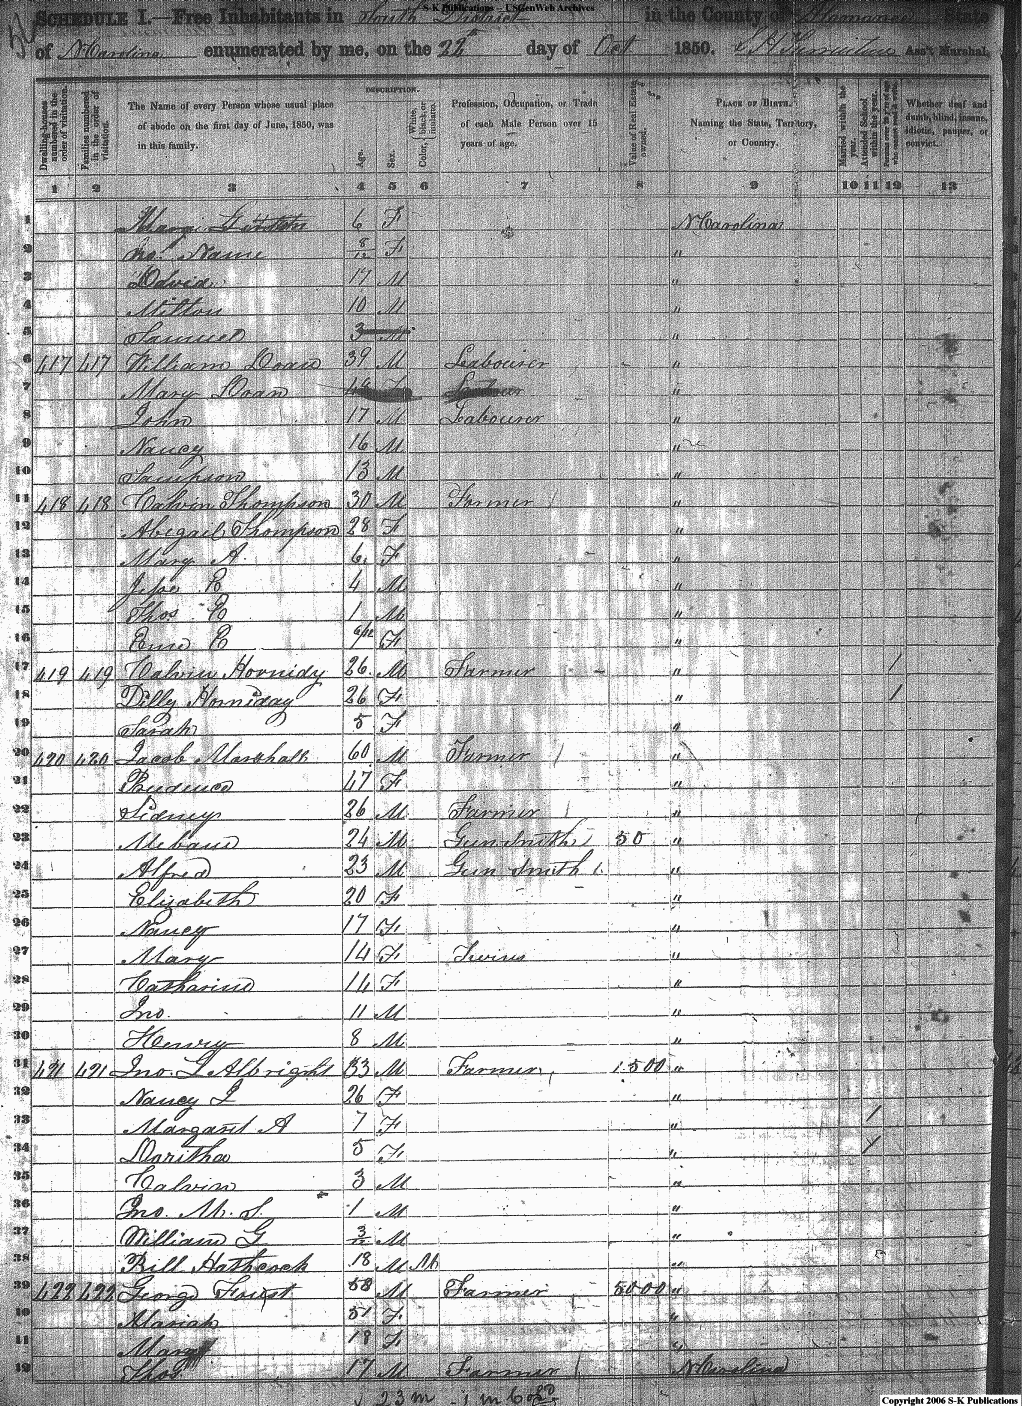 S-K Publications – USGenWeb Archives
SCHEDULE I.—Free Inhabitants in South District in the County of Alamance State
of N Carolina enumerated by me, on the 22th day of Oct 1850. Ass't Marshal.
Dwelling-houses numbered in the order of visitation.
Families numbered in the order of visitation.
The Name of every Person whose usual place of abode on the first day of June, 1850, was in this family.
DESCRIPTION.
Age.
Sex.
Color, { White, black, or mulatto.
Profession, Occupation, or Trade of each Male Person over 15 years of age.
Value of Real Estate owned.
PLACE OF BIRTH. Naming the State, Territory, or Country.
Married within the year.
Attended School within the year.
Whether deaf and dumb, blind, insane, idiotic, pauper, or convict.
1 2 3 4 5 6 7 8 9 10 11 12 13
1 Mary 6 F N Carolina
2 No Name 8/12 F "
3 David 17 M "
4 Milton 10 M "
5 Samuel 3 M "
6 417 417 William Doan 39 M Labourer "
7 Mary Doan "
8 John 17 M Labourer "
9 Nancy 16 M "
10 Sampson 13 M "
11 418 418 Calvin Thompson 30 M Farmer "
12 Abegail Thompson 28 F "
13 Mary A. 6 F "
14 Jesse R 4 M "
15 Thos C 1 M "
16 6/12 F "
17 419 419 Calvin Hornidy 26 M Farmer "
18 Dilly Horniday 26 F " 1
19 Sarah 5 F "
20 420 420 Jacob Marshall 60 M Farmer "
21 Prudence 47 F "
22 Sidney 26 M Farmer "
23 Mebane 24 M Gun Smith 50 "
24 Alfred 23 M Gun Smith "
25 Elizabeth 20 F "
26 Nancy 17 F "
27 Mary 14 F Twins "
28 Catharine 14 F "
29 Jno. 11 M "
30 Henry 8 M "
31 421 421 Jno. L Albright 33 M Farmer 1500 "
32 Nancy J 26 F "
33 Margaret A 7 F " /
34 Doritha 5 F " /
35 Calvin 3 M "
36 Jno. M. S. 1 M "
37 William G 3/12 M "
38 Bill Hathcock 18 M M "
39 422 422 George Foust 58 M Farmer 5000 "
40 Mariah 51 F "
41 Mary 18 F "
42 Thos. 17 M Farmer N Carolina
23 m 1 m
Copyright 2006 S-K Publications